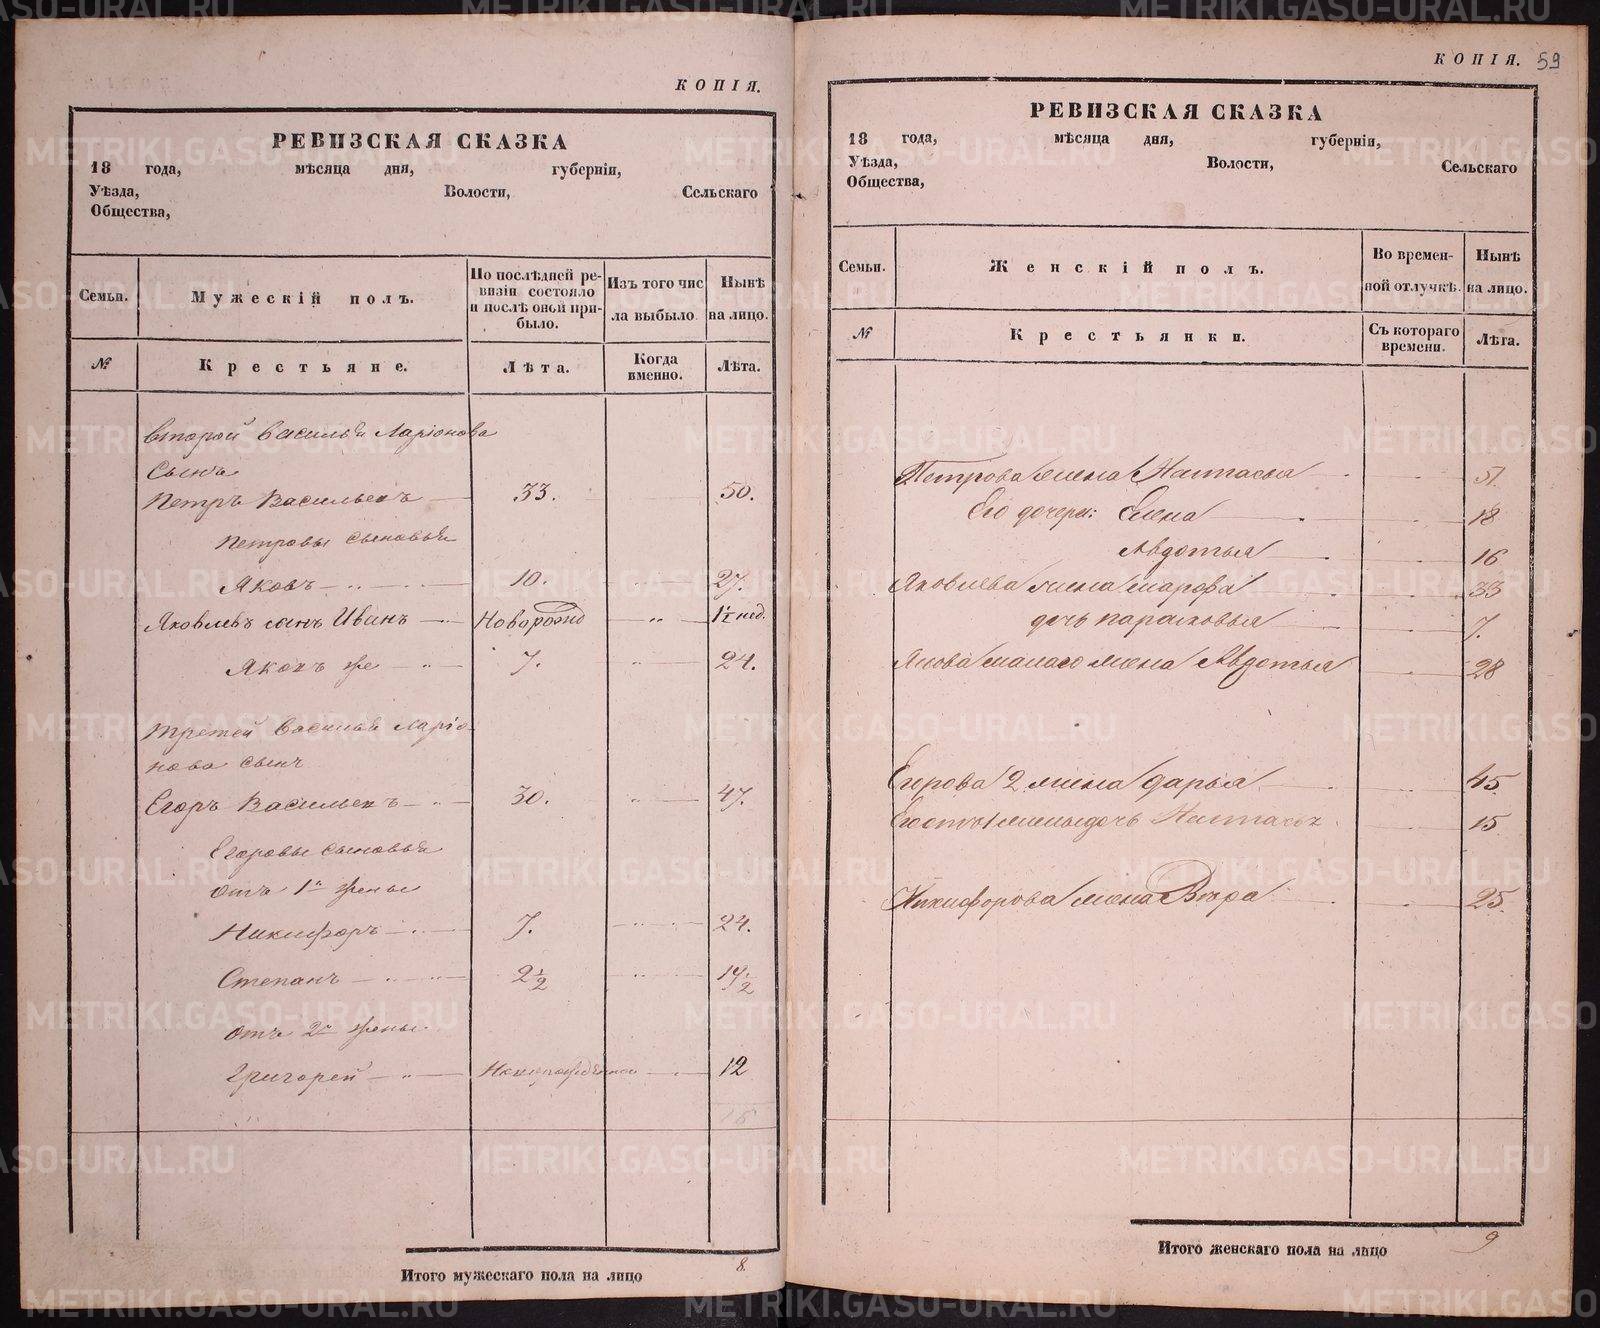 КОПІЯ.
РЕВИЗСКАЯ СКАЗКА
18 года, мѣсяца дня, губерніи,
Уѣзда, Волости, Сельскаго
Общества,
Семьи. Мужескій полъ. По послѣдней ревизіи состояло и послѣ оной прибыло. Изъ того числа выбыло. Нынѣ на лицо.
№ Крестьяне. Лѣта. Когда именно. Лѣта.
Второй Василья Ларіонова
Сынъ
Петръ Васильевъ 33. 50.
Петровы сыновья
Яковъ 10. 27.
Яковлевъ сынъ Иванъ Новорожд 1½ нед.
Яковъ же 7. 24.
Третей Василья Ларіо-
нова сынъ
Егоръ Васильевъ 30. 47.
Егоровы сыновья
Отъ 1й жены
Никифоръ 7. 24.
Степанъ 2½ 19½
Отъ 2й жены
Григорей Новорожденной 12
Итого мужескаго пола на лицо 8.
КОПІЯ. 59
РЕВИЗСКАЯ СКАЗКА
18 года, мѣсяца дня, губерніи,
Уѣзда, Волости, Сельскаго
Общества,
Семьи. Женскій полъ. Во временной отлучкѣ. Нынѣ на лицо.
№ Крестьянки. Съ котораго времени. Лѣта.
Петрова жена Настасья 51.
Его дочери: Елена 18
Авдотья 16
Яковлева жена Марфа 33
дочь Парасковья 7.
Якова малаго жена Авдотья 28
Егорова 2 жена Дарья 45
Его отъ 1 жены дочь Настасья 15
Никифорова жена Вѣра 25
Итого женскаго пола на лицо 9
METRIKI.GASO-URAL.RU